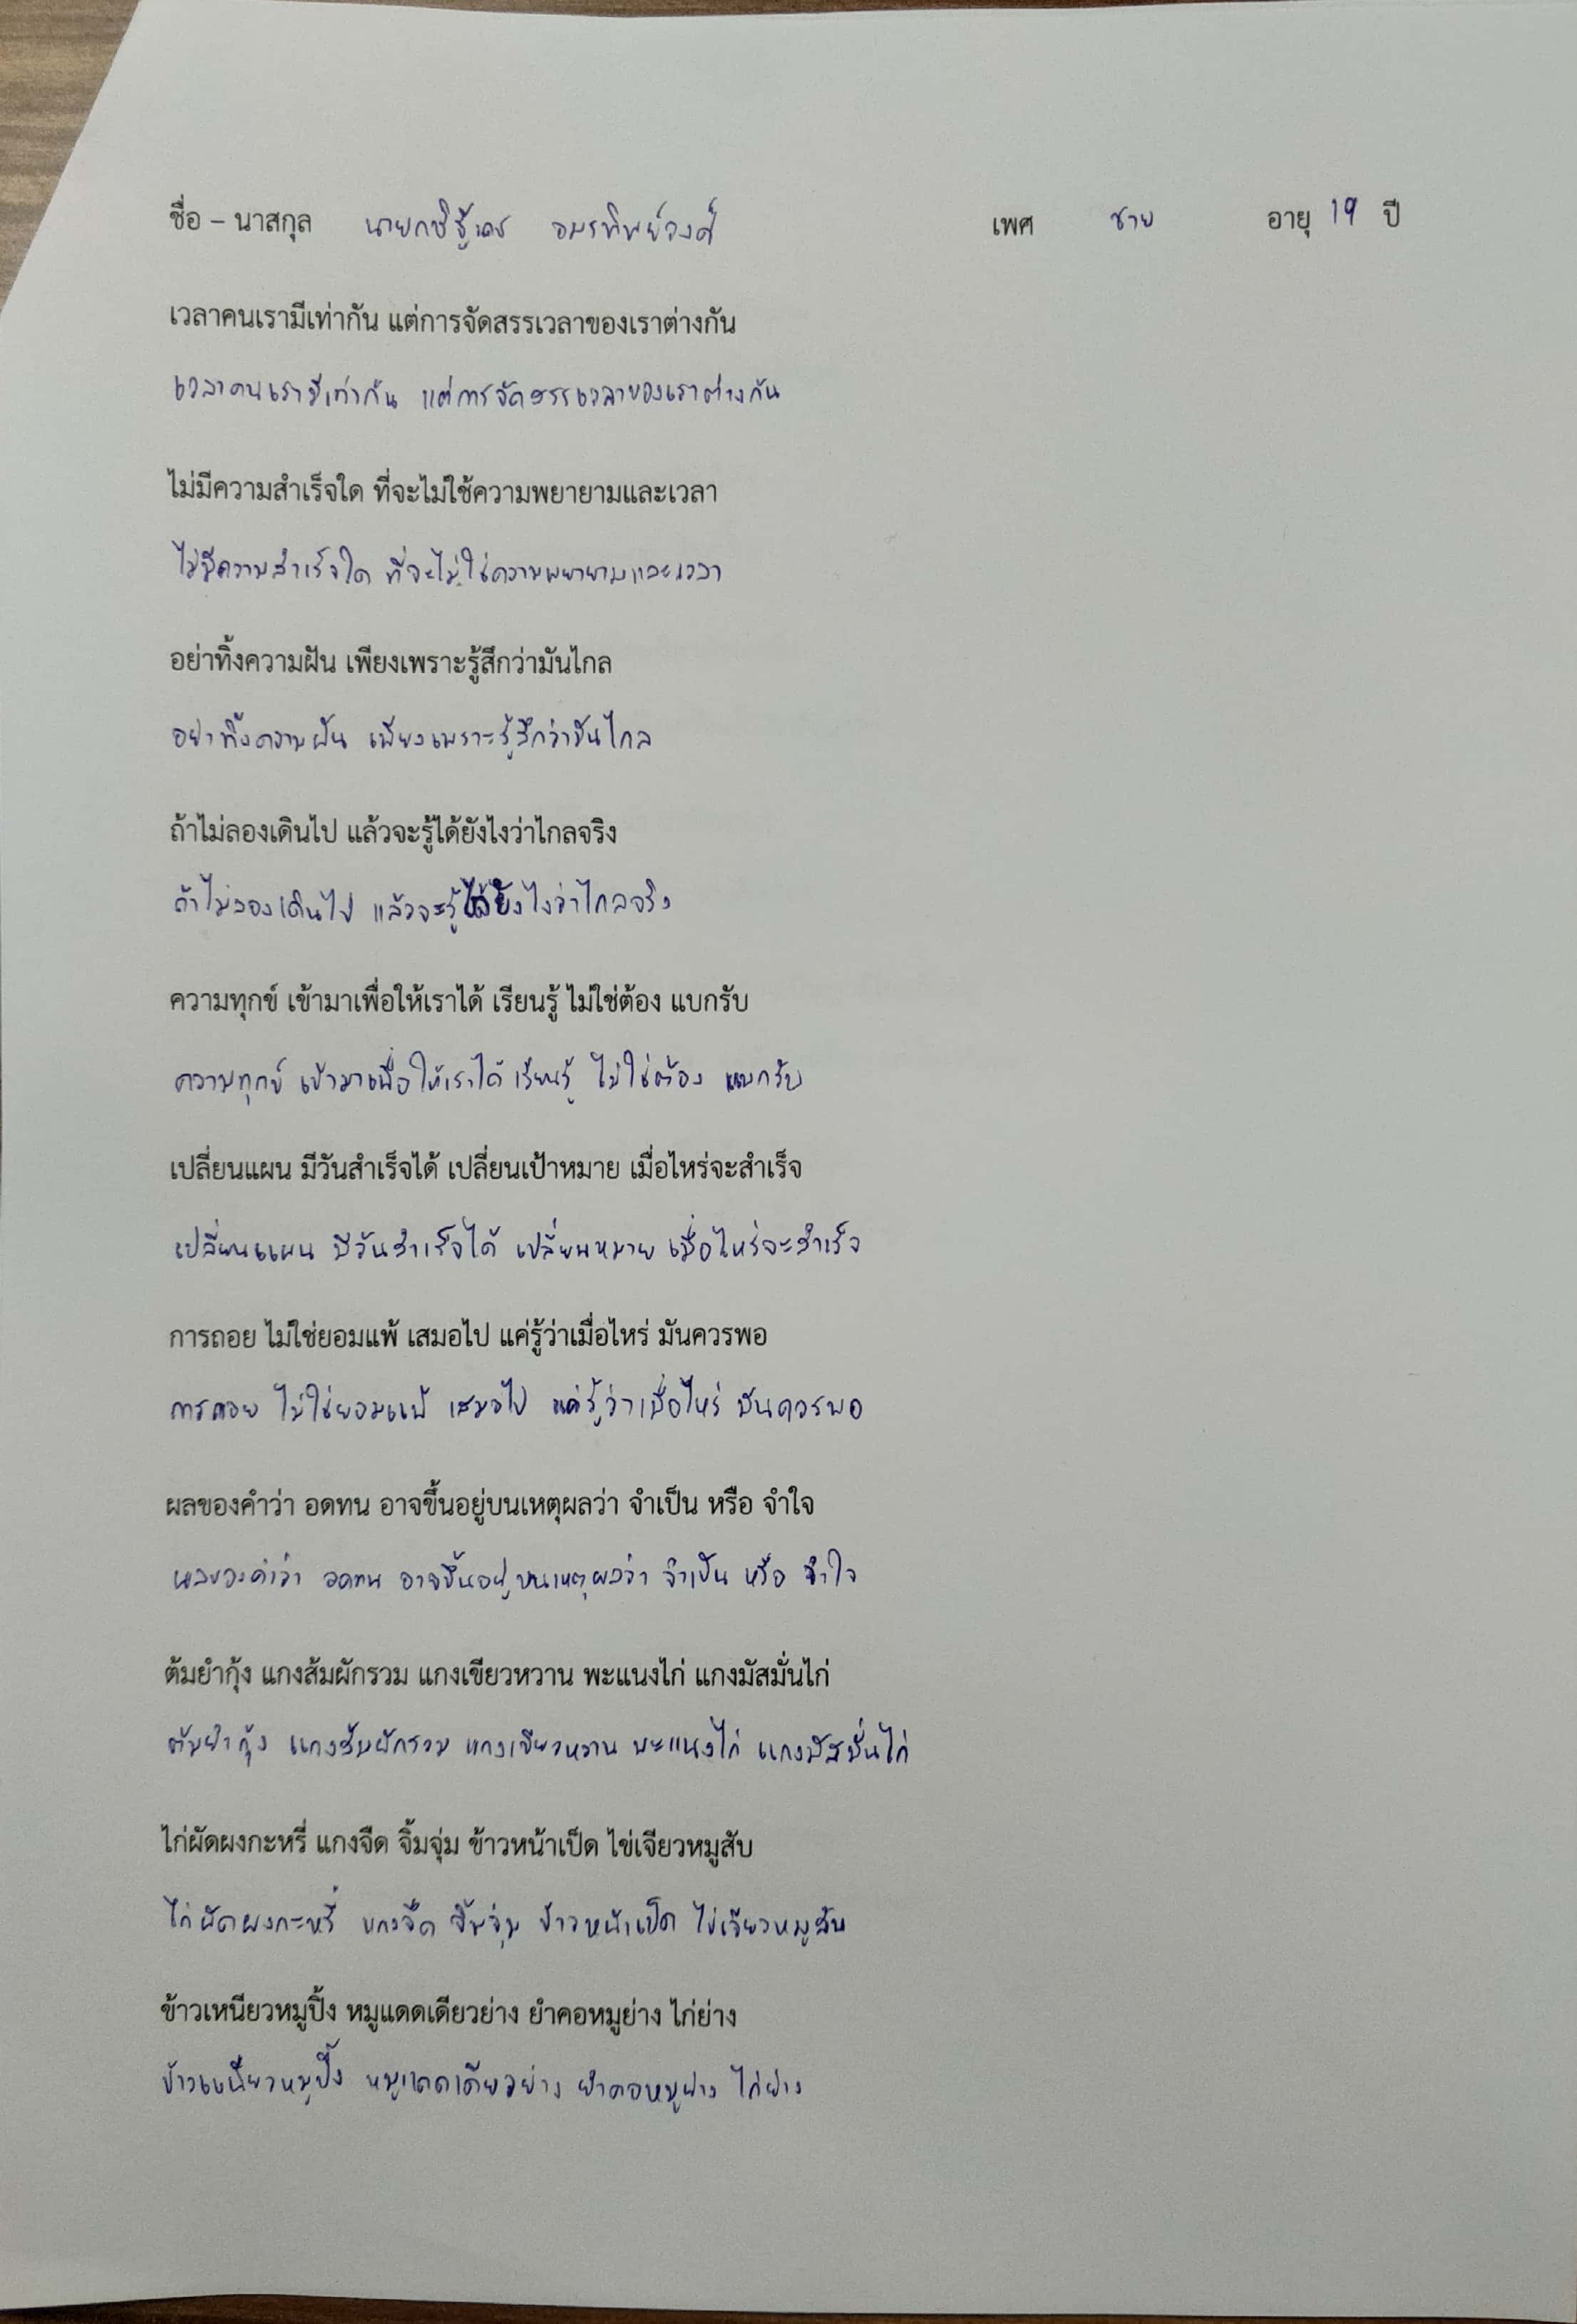 ชื่อ – นาสกุล อมรทิพย์วงศ์ เพศ ชาย อายุ 19 ปี
เวลาคนเรามีเท่ากัน แต่การจัดสรรเวลาของเราต่างกัน
เวลาคนเรามีเท่ากัน แต่การจัดสรรเวลาของเราต่างกัน
ไม่มีความสำเร็จใด ที่จะไม่ใช้ความพยายามและเวลา
ไม่มีความสำเร็จใด ที่จะไม่ใช้ความพยายามและเวลา
อย่าทิ้งความฝัน เพียงเพราะรู้สึกว่ามันไกล
อย่าทิ้งความฝัน เพียงเพราะรู้สึกว่ามันไกล
ถ้าไม่ลองเดินไป แล้วจะรู้ได้ยังไงว่าไกลจริง
ถ้าไม่ลองเดินไป แล้วจะรู้ได้ยังไงว่าไกลจริง
ความทุกข์ เข้ามาเพื่อให้เราได้ เรียนรู้ ไม่ใช่ต้อง แบกรับ
ความทุกข์ เข้ามาเพื่อให้เราได้ เรียนรู้ ไม่ใช่ต้อง แบกรับ
เปลี่ยนแผน มีวันสำเร็จได้ เปลี่ยนเป้าหมาย เมื่อไหร่จะสำเร็จ
เปลี่ยนแผน มีวันสำเร็จได้ เปลี่ยนหมาย เมื่อไหร่จะสำเร็จ
การถอย ไม่ใช่ยอมแพ้ เสมอไป แค่รู้ว่าเมื่อไหร่ มันควรพอ
การถอย ไม่ใช่ยอมแพ้ เสมอไป แค่รู้ว่าเมื่อไหร่ มันควรพอ
ผลของคำว่า อดทน อาจขึ้นอยู่บนเหตุผลว่า จำเป็น หรือ จำใจ
ผลของคำว่า อดทน อาจขึ้นอยู่บนเหตุผลว่า จำเป็น หรือ จำใจ
ต้มยำกุ้ง แกงส้มผักรวม แกงเขียวหวาน พะแนงไก่ แกงมัสมั่นไก่
ต้มยำกุ้ง แกงส้มผักรวม แกงเขียวหวาน พะแนงไก่ แกงมัสมั่นไก่
ไก่ผัดผงกะหรี่ แกงจืด จิ้มจุ่ม ข้าวหน้าเป็ด ไข่เจียวหมูสับ
ไก่ผัดผงกะหรี่ แกงจืด จิ้มจุ่ม ข้าวหน้าเป็ด ไข่เจียวหมูสับ
ข้าวเหนียวหมูปิ้ง หมูแดดเดียวย่าง ยำคอหมูย่าง ไก่ย่าง
ข้าวเหนียวหมูปิ้ง หมูแดดเดียวย่าง ยำคอหมูย่าง ไก่ย่าง